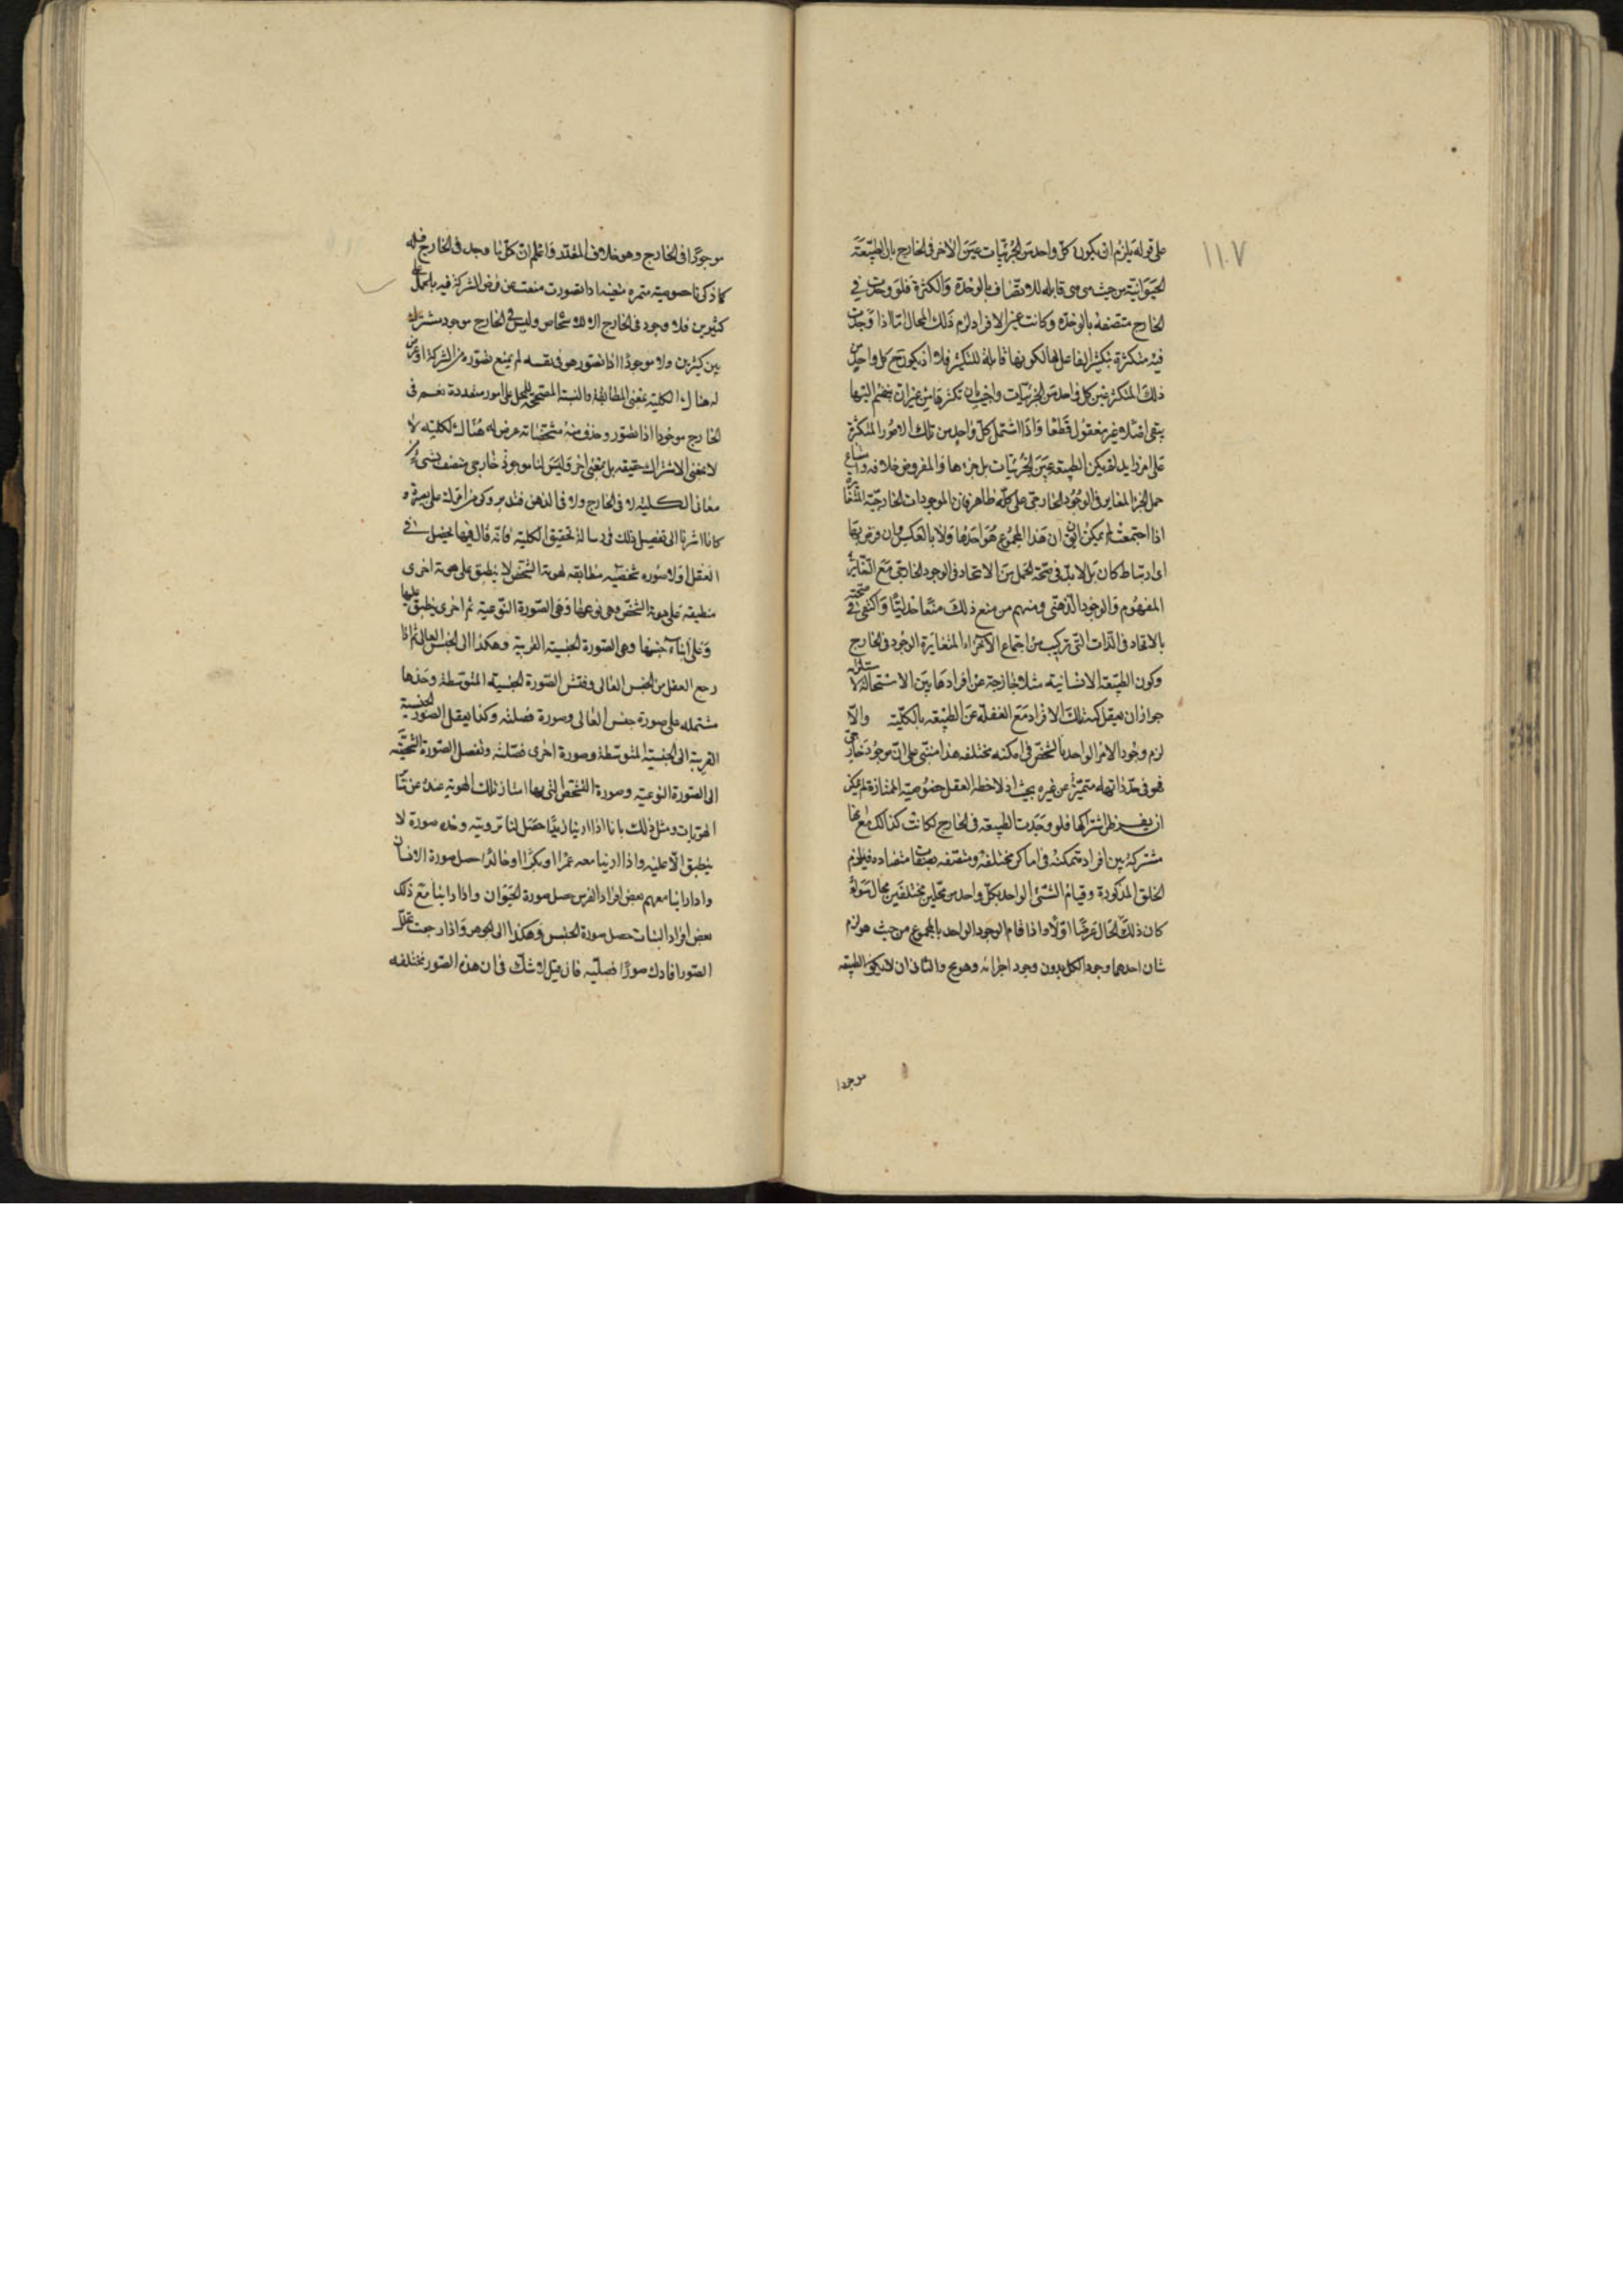 ١١٠٧
على قوله يلزم ان يكون كل واحد من الجزئيات عين الاخر فى الخارج بان الطبيعة
الحيوانية من حيث هى هى قابله للاتصاف بالوحدة والكثرة فلو وجدت فى
الخارج متصفه بالوحده وكانت عين الافراد لزم ذلك المحال اما اذا وجدت
فيه متكثرة بتكثير الفاعل لها لكونها قابلة للتكثير فلا اذ يكون ح كل واحد من
ذلك المتكثر عين كل واحد من الجزئيات واجيب بان تكثرها من غير ان ينضم اليها
شىء اصلا غير معقول قطعا واذا اشتمل كل واحد من تلك الامور المتكثرة
على امر زايد لم يكن الطبيعة عين الجزئيات بل جزءها والمفروض خلافه وامتناع
حمل الجزء المغاير فى الوجود الخارجى على كله ظاهر فان الموجودات الخارجية المتغايرة
اذا اجتمعت لم يمكن ان يق ان هذا المجموع هو احدها ولا بالعكس وان فرض بينها
اى ارتباط كان بل لا بد فى صحة الحمل من الاتحاد فى الوجود الخارجى مع التغاير فى
المفهوم والوجود الذهنى ومنهم من منع ذلك منعا جدليا واكتفى فى صحته
بالاتحاد فى الذات التى تركبت من اجتماع الاجزاء المتغايرة الوجود فى الخارج
وكون الطبيعة الانسانية مثلا خارجة عن افرادها بين الاستحالة لاستلزامه
جواز ان يعقل كنه تلك الافراد مع الغفلة عن الطبيعه بالكلية والا
لزم وجود الامر الواحد بالشخص فى امكنه مختلفه هذا مبنى على ان كل موجود خارجى
فهو فى حد ذاته متميز عن غيره بحيث اذا لاحظه العقل بخصوصيته الممتازة لم يمكن
ان يفرض اشتراكها فلو وجدت الطبيعه فى الخارج لكانت كذلك مع انها
مشتركة بين افراد متمكنه فى اماكن مختلفة ومتصفه بصفات متضاده فيلزم
الخلق المذكورة وقيام الشىء الواحد بكل واحد من محلين مختلفين محال سواء
كان ذلك الحال عرضا اولا واذا قام الوجود الواحد بالمجموع من حيث هو لزم
شان احدهما وجود الكل بدون وجود اجزائه وهو مح والثانى ان لا يكون الطبيعه
موجودا
موجودا فى الخارج وهو خلاف المقدر واعلم ان كل ما وجد فى الخارج فله
كما ذكرنا خصوصية متميزه متعينه اذا تصورت منعت من فرض الشركة فيه بالحمل على
كثيرين فلا وجود فى الخارج الا للاشخاص وليس فى الخارج موجود مشترك
بين كثيرين ولا موجود اذا تصور هو فى نفسه لم يمنع تصوره من الشركة او عرض
له هناك الكلية بمعنى المطابقة والنسبة المصححة للحمل على امور متعددة نعم فى
الخارج موجود اذا تصور وحذف عنه مشخصاته عرض له هناك الكليه لا
لا بمعنى الاشتراك حقيقه بل بمعنى اخر وليس لنا موجود خارجى متصف بشىء من
معانى الكلية لا فى الخارج ولا فى الذهن فتدبر وكن من امرك على بصيرة و
كانا اشرنا الى تفصيل ذلك فى رسالة تحقيق الكلية فانه قال فيها يحصل فى
العقل اولا صوره شخصيه مطابقه لهوية الشخص لا ينطبق على هوية اخرى
منطبقه على هوية الشخص وهى نوعها وهى الصورة النوعية ثم اخرى ينطبق عليها
وعلى ابناء جنسها وهى الصورة الجنسية القريبة وهكذا الى الجنس العالى ثم اذا
رجع العقل من الجنس العالى وفتش الصورة الجنسية المتوسطة وجدها
مشتمله على صورة جنس العالى وصورة فصلته وكذا يعقل الصورة الجنسية
القريبة الى الجنسية المتوسطة وصورة اخرى فصلته وتفصل الصورة الشخصية
الى الصورة النوعية وصورة التشخص التى بها امتاز تلك الهوية عنده عن سائر
الهويات ومثل ذلك بانا اذا راينا زيدا حصل لنا من رويته وحده صورة لا
ينطبق الا عليه واذا راينا معه عمرا او بكرا او خالدا حصل صورة الانسان
واذا راينا معهم بعض افراد الفرس حصل صورة الحيوان واذا راينا مع ذلك
بعض افراد النبات حصل صورة الجنس وهكذا الى الجوهر واذا رجعت تحلل
الصور افادك صورا فصلية فان قيل لا شك فى ان هذه الصور مختلفه